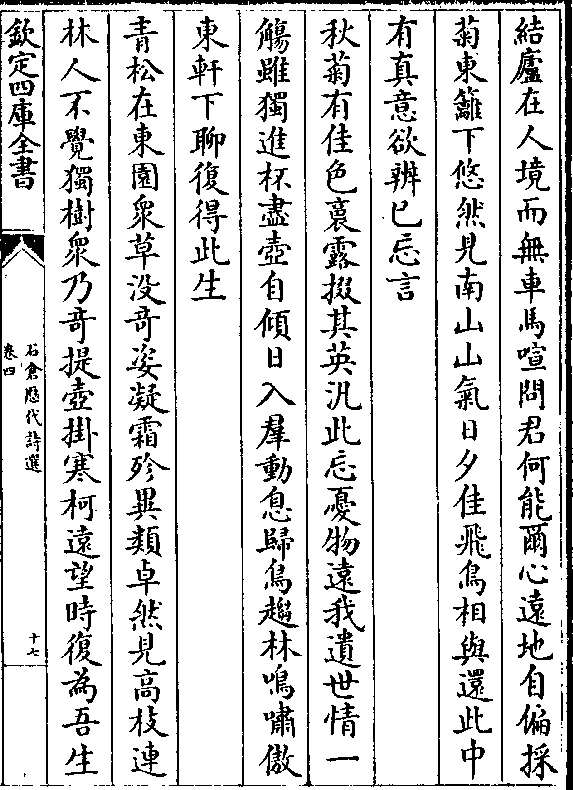 結廬在人境而無車馬喧問君何能爾心遠地自偏採
菊東籬下悠然見南山山氣日夕佳飛鳥相與還此中
有真意欲辨已忘言
秋菊有佳色裛露掇其英汎此忘憂物遠我遺世情一
觴雖獨進杯盡壺自傾日入羣動息歸鳥趨林鳴嘯傲
東軒下聊復得此生
青松在東園衆草没竒姿凝霜殄異類卓然見高枝連
林人不覺獨樹衆乃竒提壺掛寒柯遠望時復為吾生
欽定四庫全書
石倉歷代詩選
卷四
十七